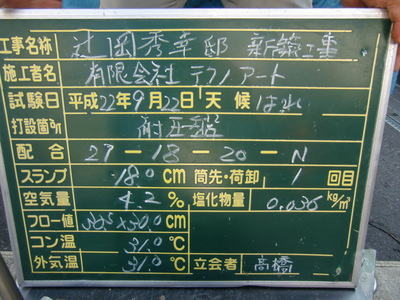 工事名称 辻岡秀幸邸 新築工事
施工者名 有限会社 テクノアート
試験日 平成22年9月22日 天候 はれ
打設箇所 耐圧盤
配合 27-18-20-N
スランプ 18.0 cm 筒先・荷卸 1 回目
空気量 4.2 % 塩化物量 0.036 kg/m³
フロー値 30.5×30.0 cm
コン温 31.0 ℃
外気温 31.0 ℃ 立会者 高橋